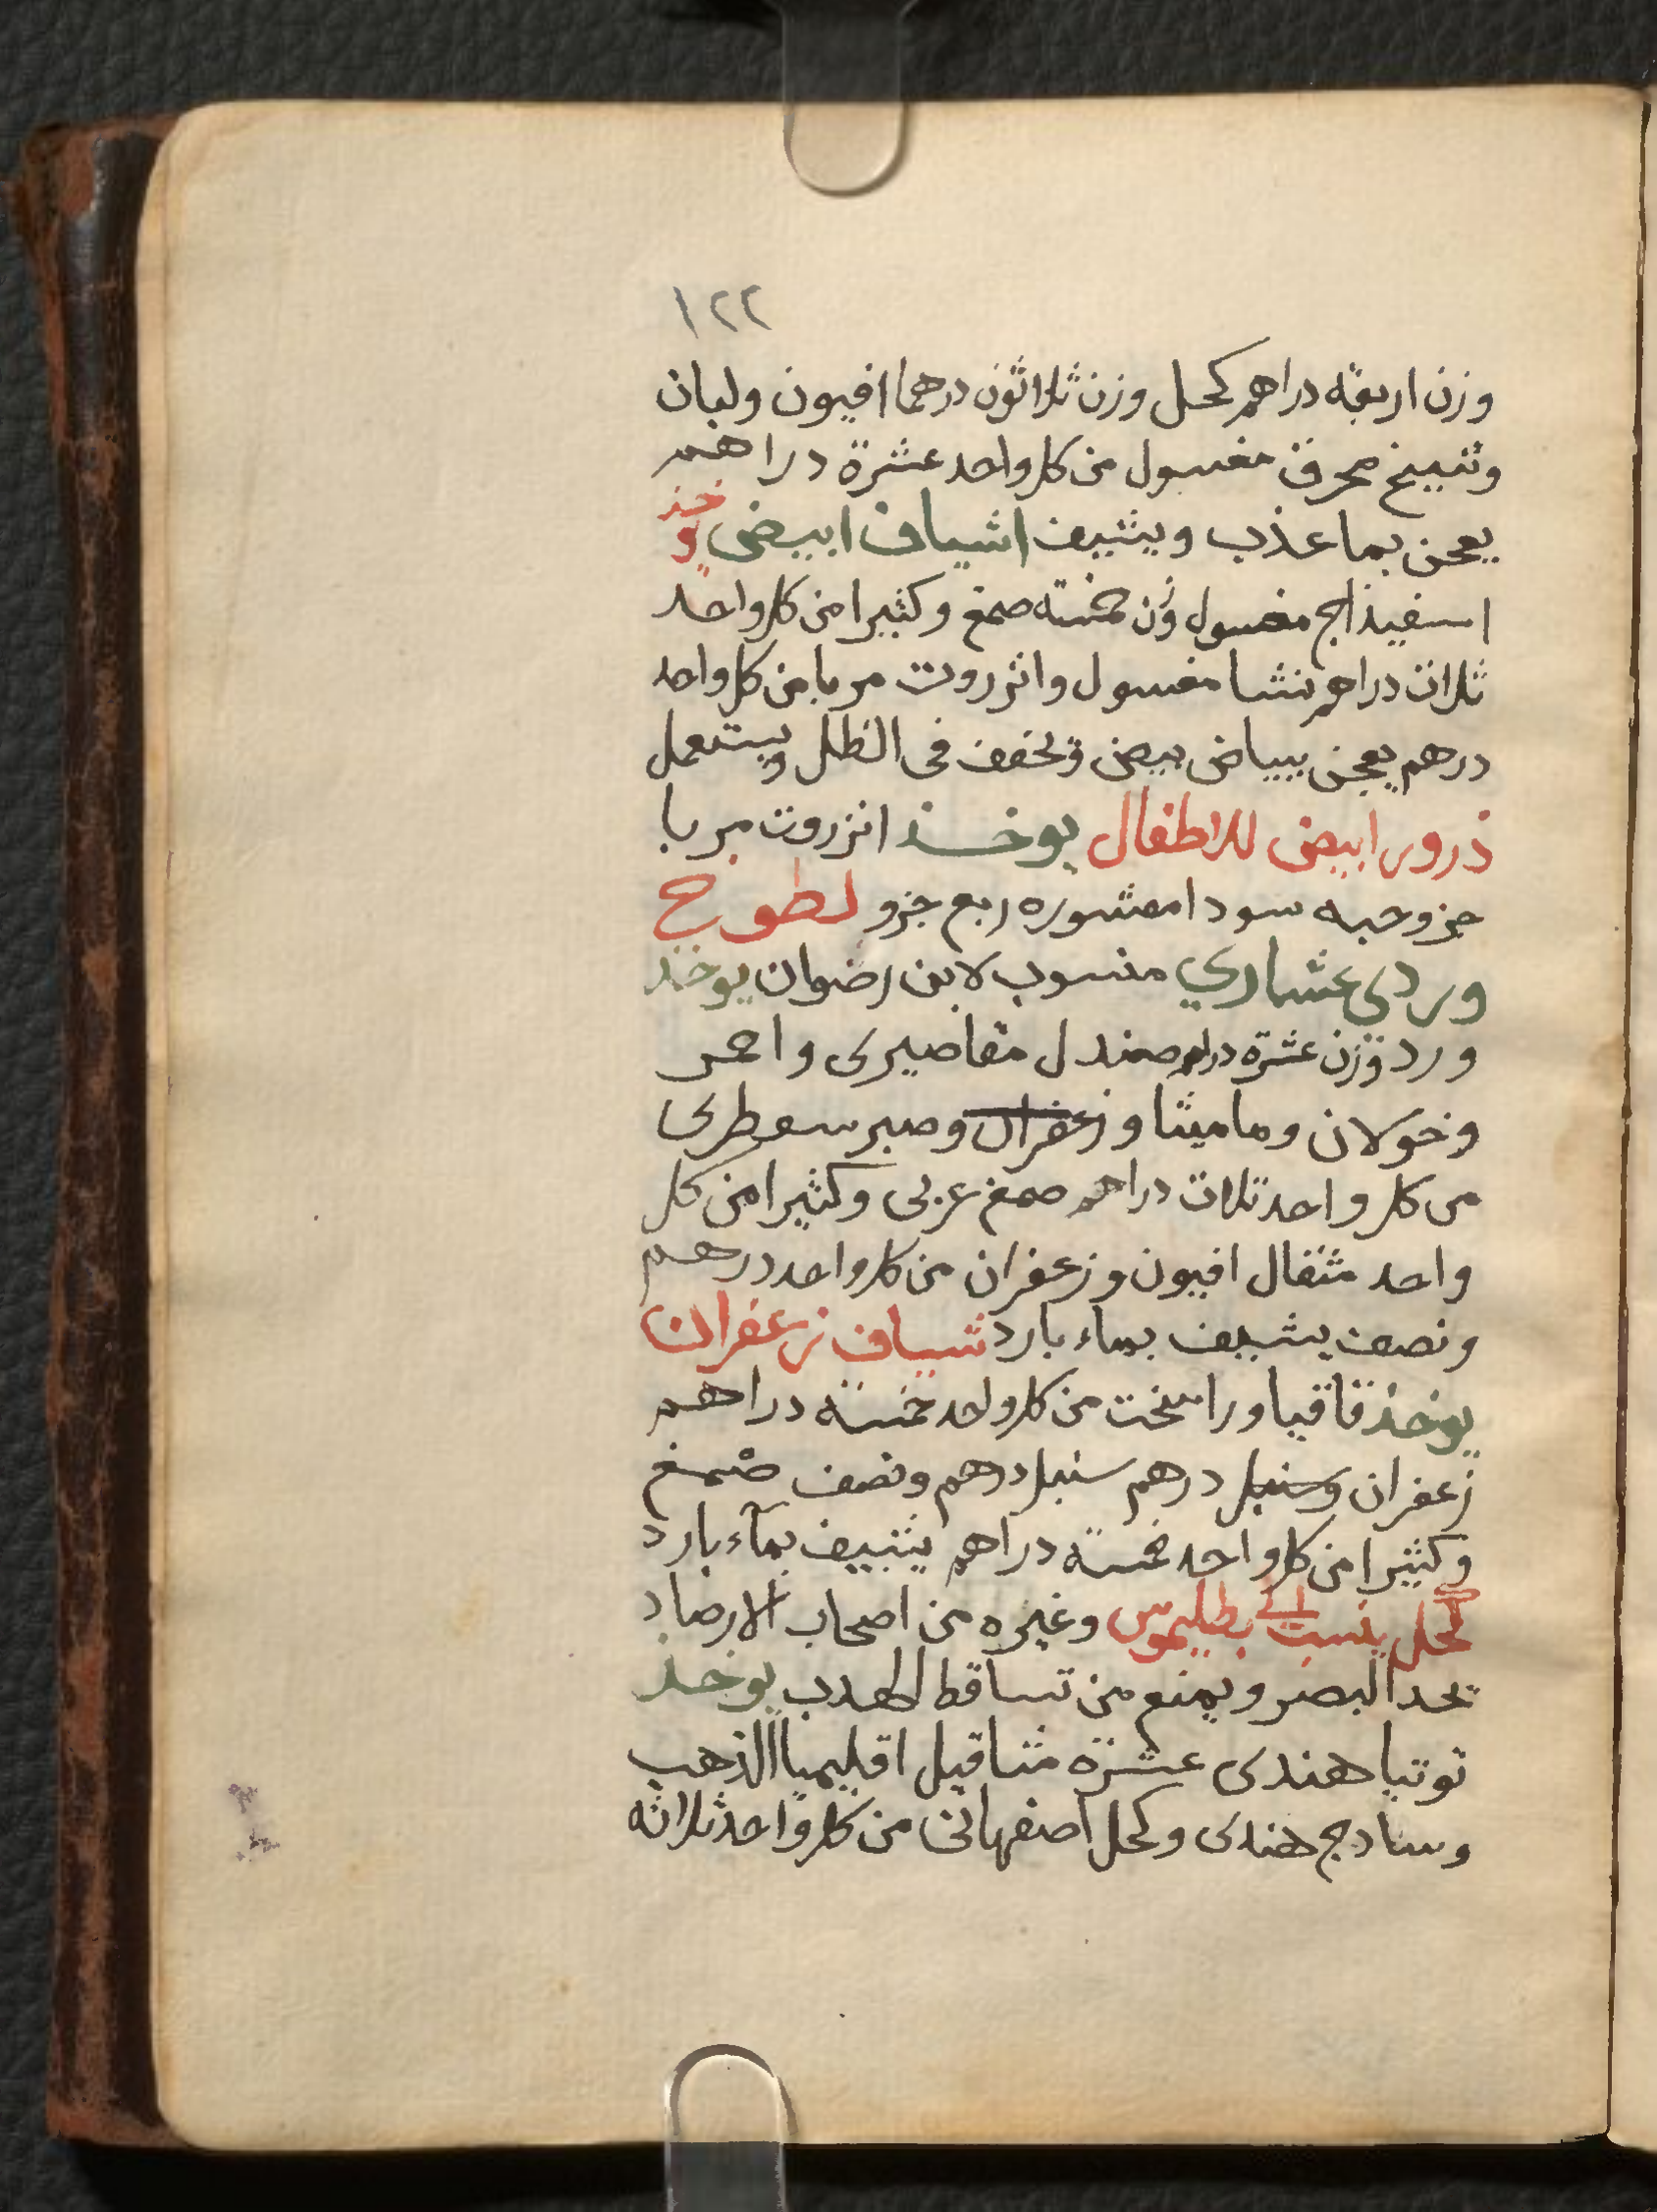 ١٢٢
وزن اربعة دراهم كحل وزن ثلاثون درهما افيون ولبان
وشيبخ محرق مغسول من كل واحد عشرة دراهم
يعجن بما عذب ويشيف اشياف ابيض يوخذ
اسفيذاج مغسول وزن خمسة صمغ وكثيرا من كل واحد
ثلاث دراهم نشا مغسول وانزروت مربا من كل واحد
درهم يعجن ببياض بيض ويخفف فى الظل ويستعمل
ذرور ابيض للاطفال يوخذ انزروت مربا
جزو حبه سودا مقشوره ربع جزو لطوخ
وردى عشاري منسوب لابن رضوان يوخذ
ورد وزن عشرة دراهم صندل مقاصيرى واحمر
وخولان وماميثا وزعفران وصبر سقطرى
من كل واحد ثلاث دراهم صمغ عربى وكثيرا من كل
واحد مثقال افيون وزعفران من كل واحد درهم
ونصف يشيف بماء بارد شياف زعفران
يوخذ قاقيا وراسخت من كل واحد خمسة دراهم
زعفران وسنبل درهم سنبل درهم ونصف صمغ
وكثيرا من كل واحد خمسة دراهم يشيف بمآء بارد
كحل ينسب الى بطليموس وغيره من اصحاب الارصاد
يحد البصر ويمنع من تساقط الهدب يوخذ
توتيا هندى عشرة مثاقيل اقليميا الذهب
وسادج هندى وكحل اصفهانى من كل واحد ثلاثه